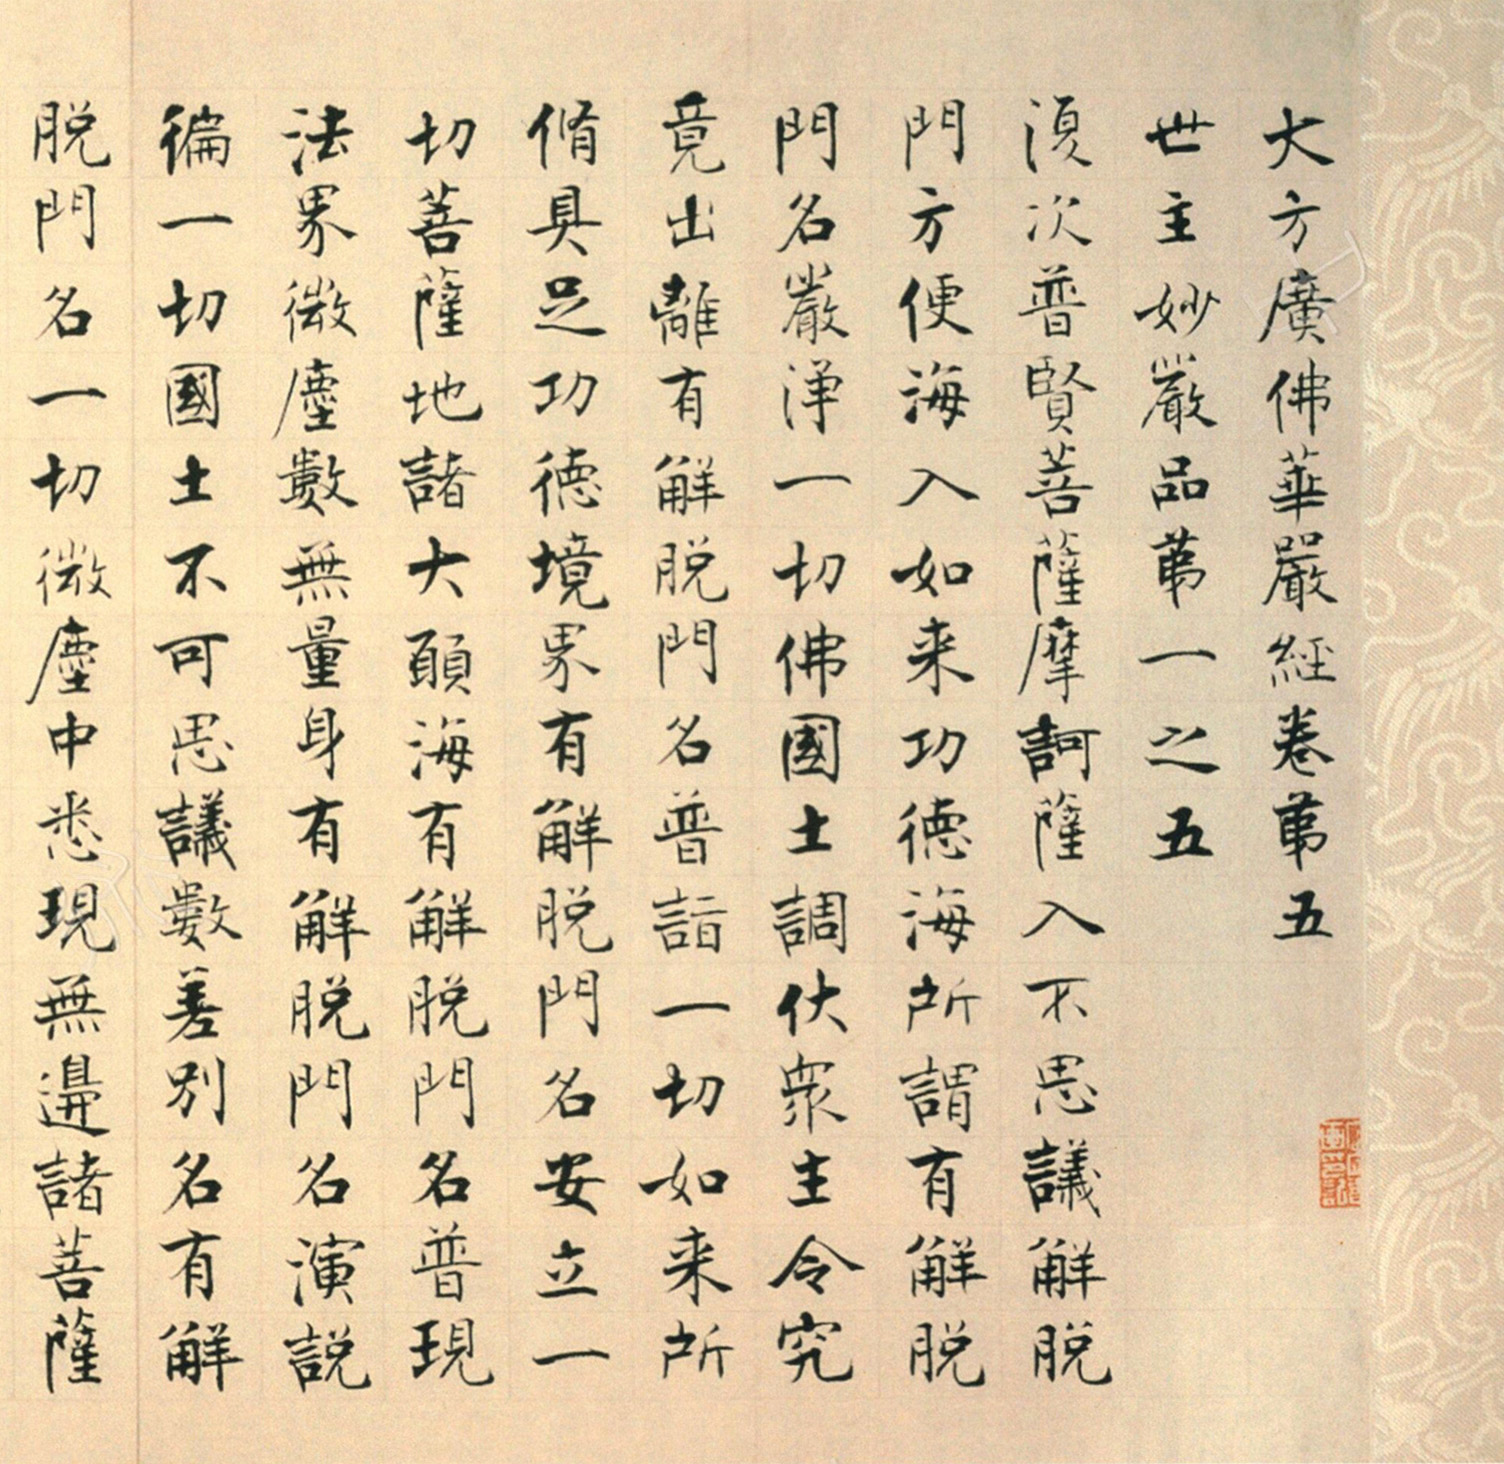 大方廣佛華嚴經卷苐五
世主妙嚴品苐一之五
湏次普賢菩薩摩訶薩入不思議解脱
門方便海入如来功德海所謂有解脱
門名嚴淨一切佛國土調伏衆主令究
竟出離有解脱門名普詣一切如来所
脩具足功德境界有解脱門名安立一
切菩薩地諸大願海有解脱門名普現
法界微塵數無量身有解脱門名演説
徧一切國土不可思議數差别名有解
脱門名一切微塵中悉現無邊諸菩薩